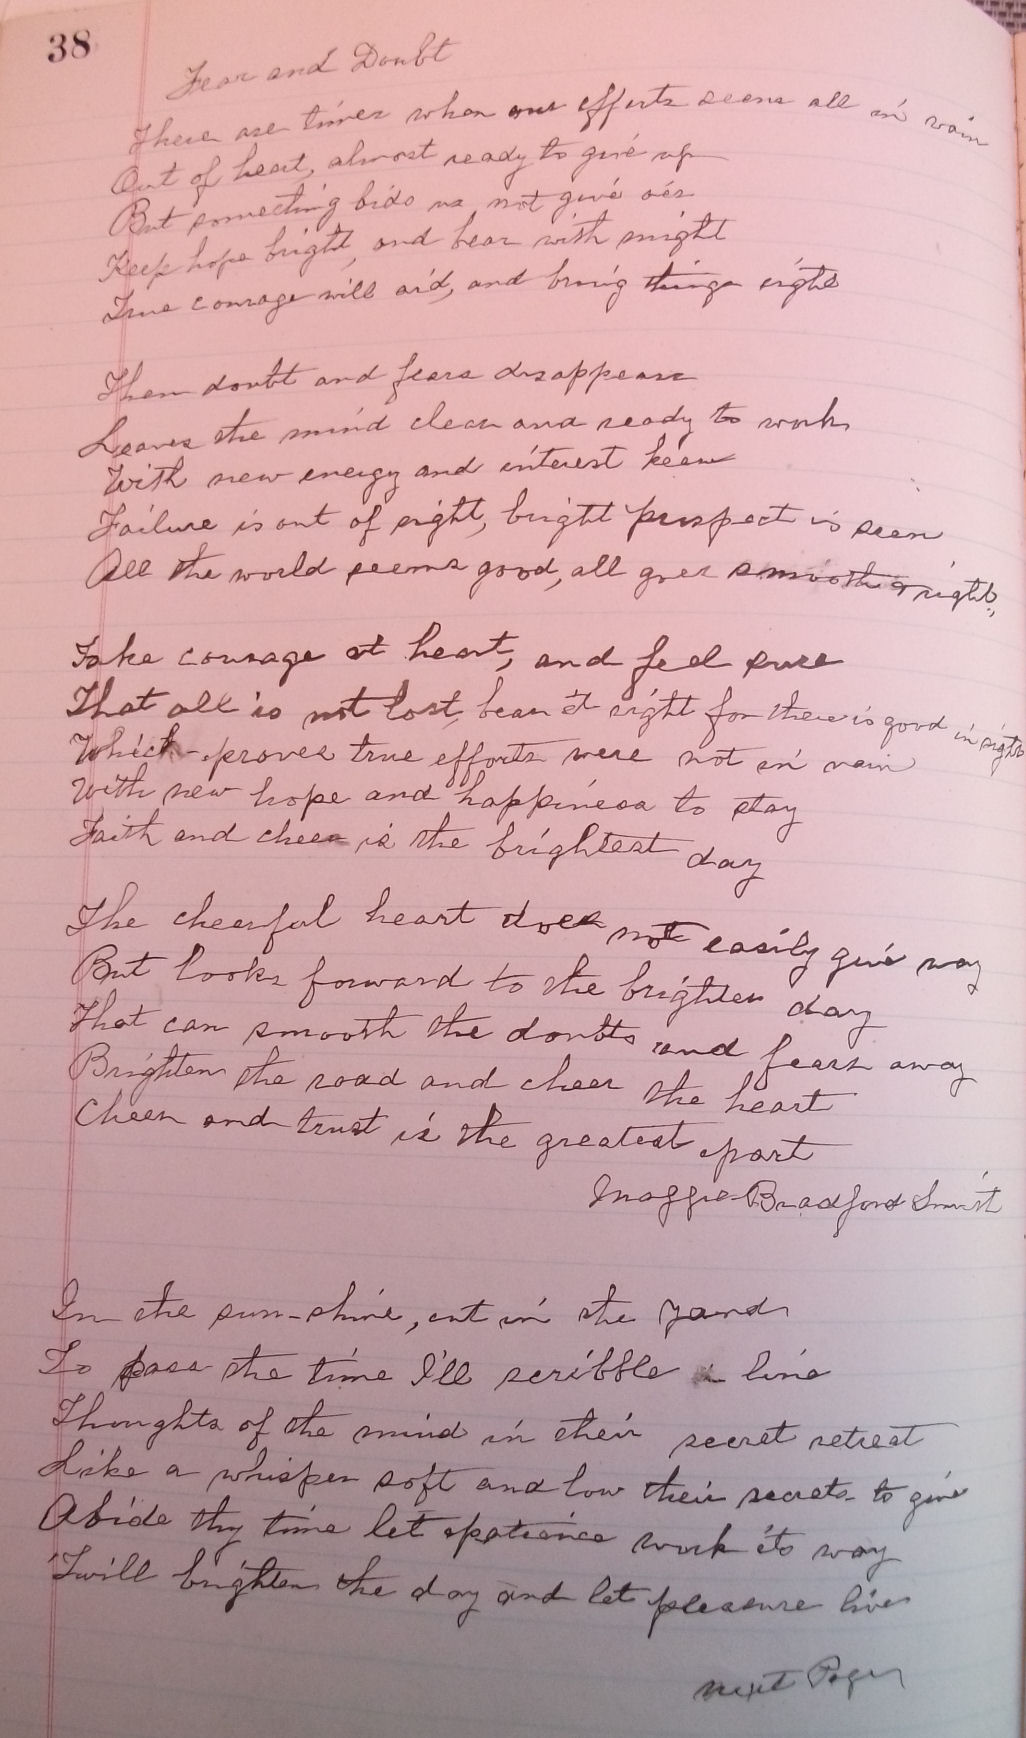 38
Fear and Doubt
There are times when our efforts seems all in vain
Out of heart, almost ready to give up
But something bids us not give o'er
Keep hope bright, and bear with might
True courage will aid, and bring things right
Then doubt and fears disappears
Leaves the mind clear and ready to work
With new energy and interest keen
Failure is out of sight, bright prospect is seen
All the world seems good, all goes smooth & right,
Take courage at heart, and feel sure
That all is not lost, bear it right for there is good in sight
Which proves true efforts were not in vain
With new hope and happiness to stay
Faith and cheer is the brightest day
The cheerful heart does not easily give way
But looks forward to the brighter day
That can smooth the doubts and fears away
Brighten the road and cheer the heart
Cheer and trust is the greatest part
Maggie Bradford Smith
In the sun-shine, out in the yard
To pass the time I'll scribble a line
Thoughts of the mind in their secret retreat
Like a whisper soft and low their secrets to give
Abide thy time let patience work its way
'Twill brighten the day and let pleasure live
next Page